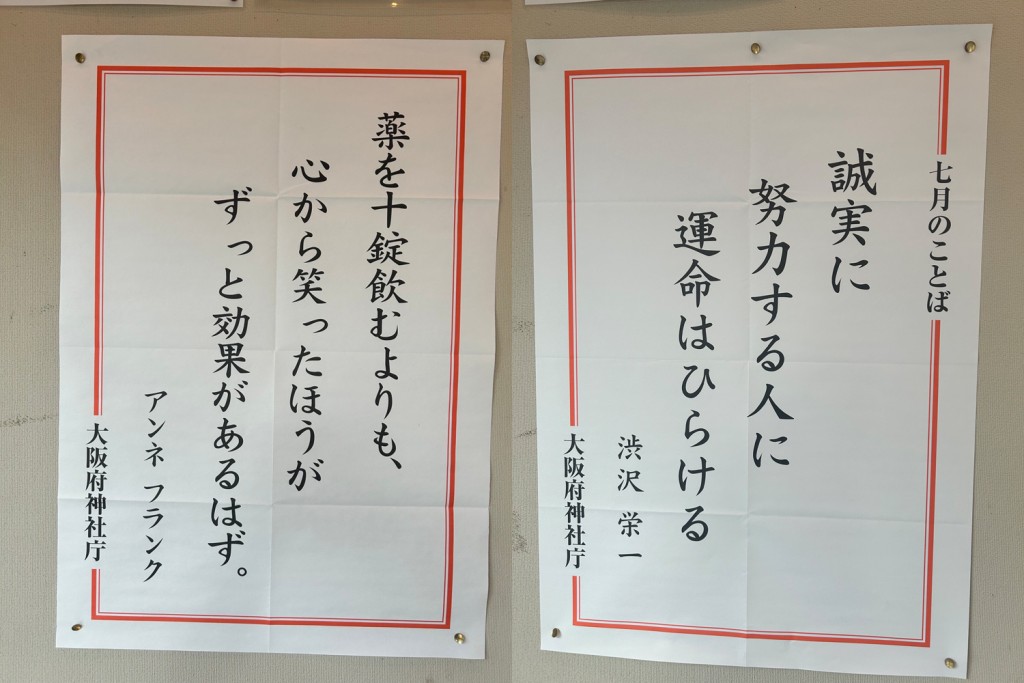 七月のことば
誠実に
努力する人に
運命はひらける
渋沢 栄一
大阪府神社庁
薬を十錠飲むよりも、
心から笑ったほうが
ずっと効果があるはず。
アンネ フランク
大阪府神社庁